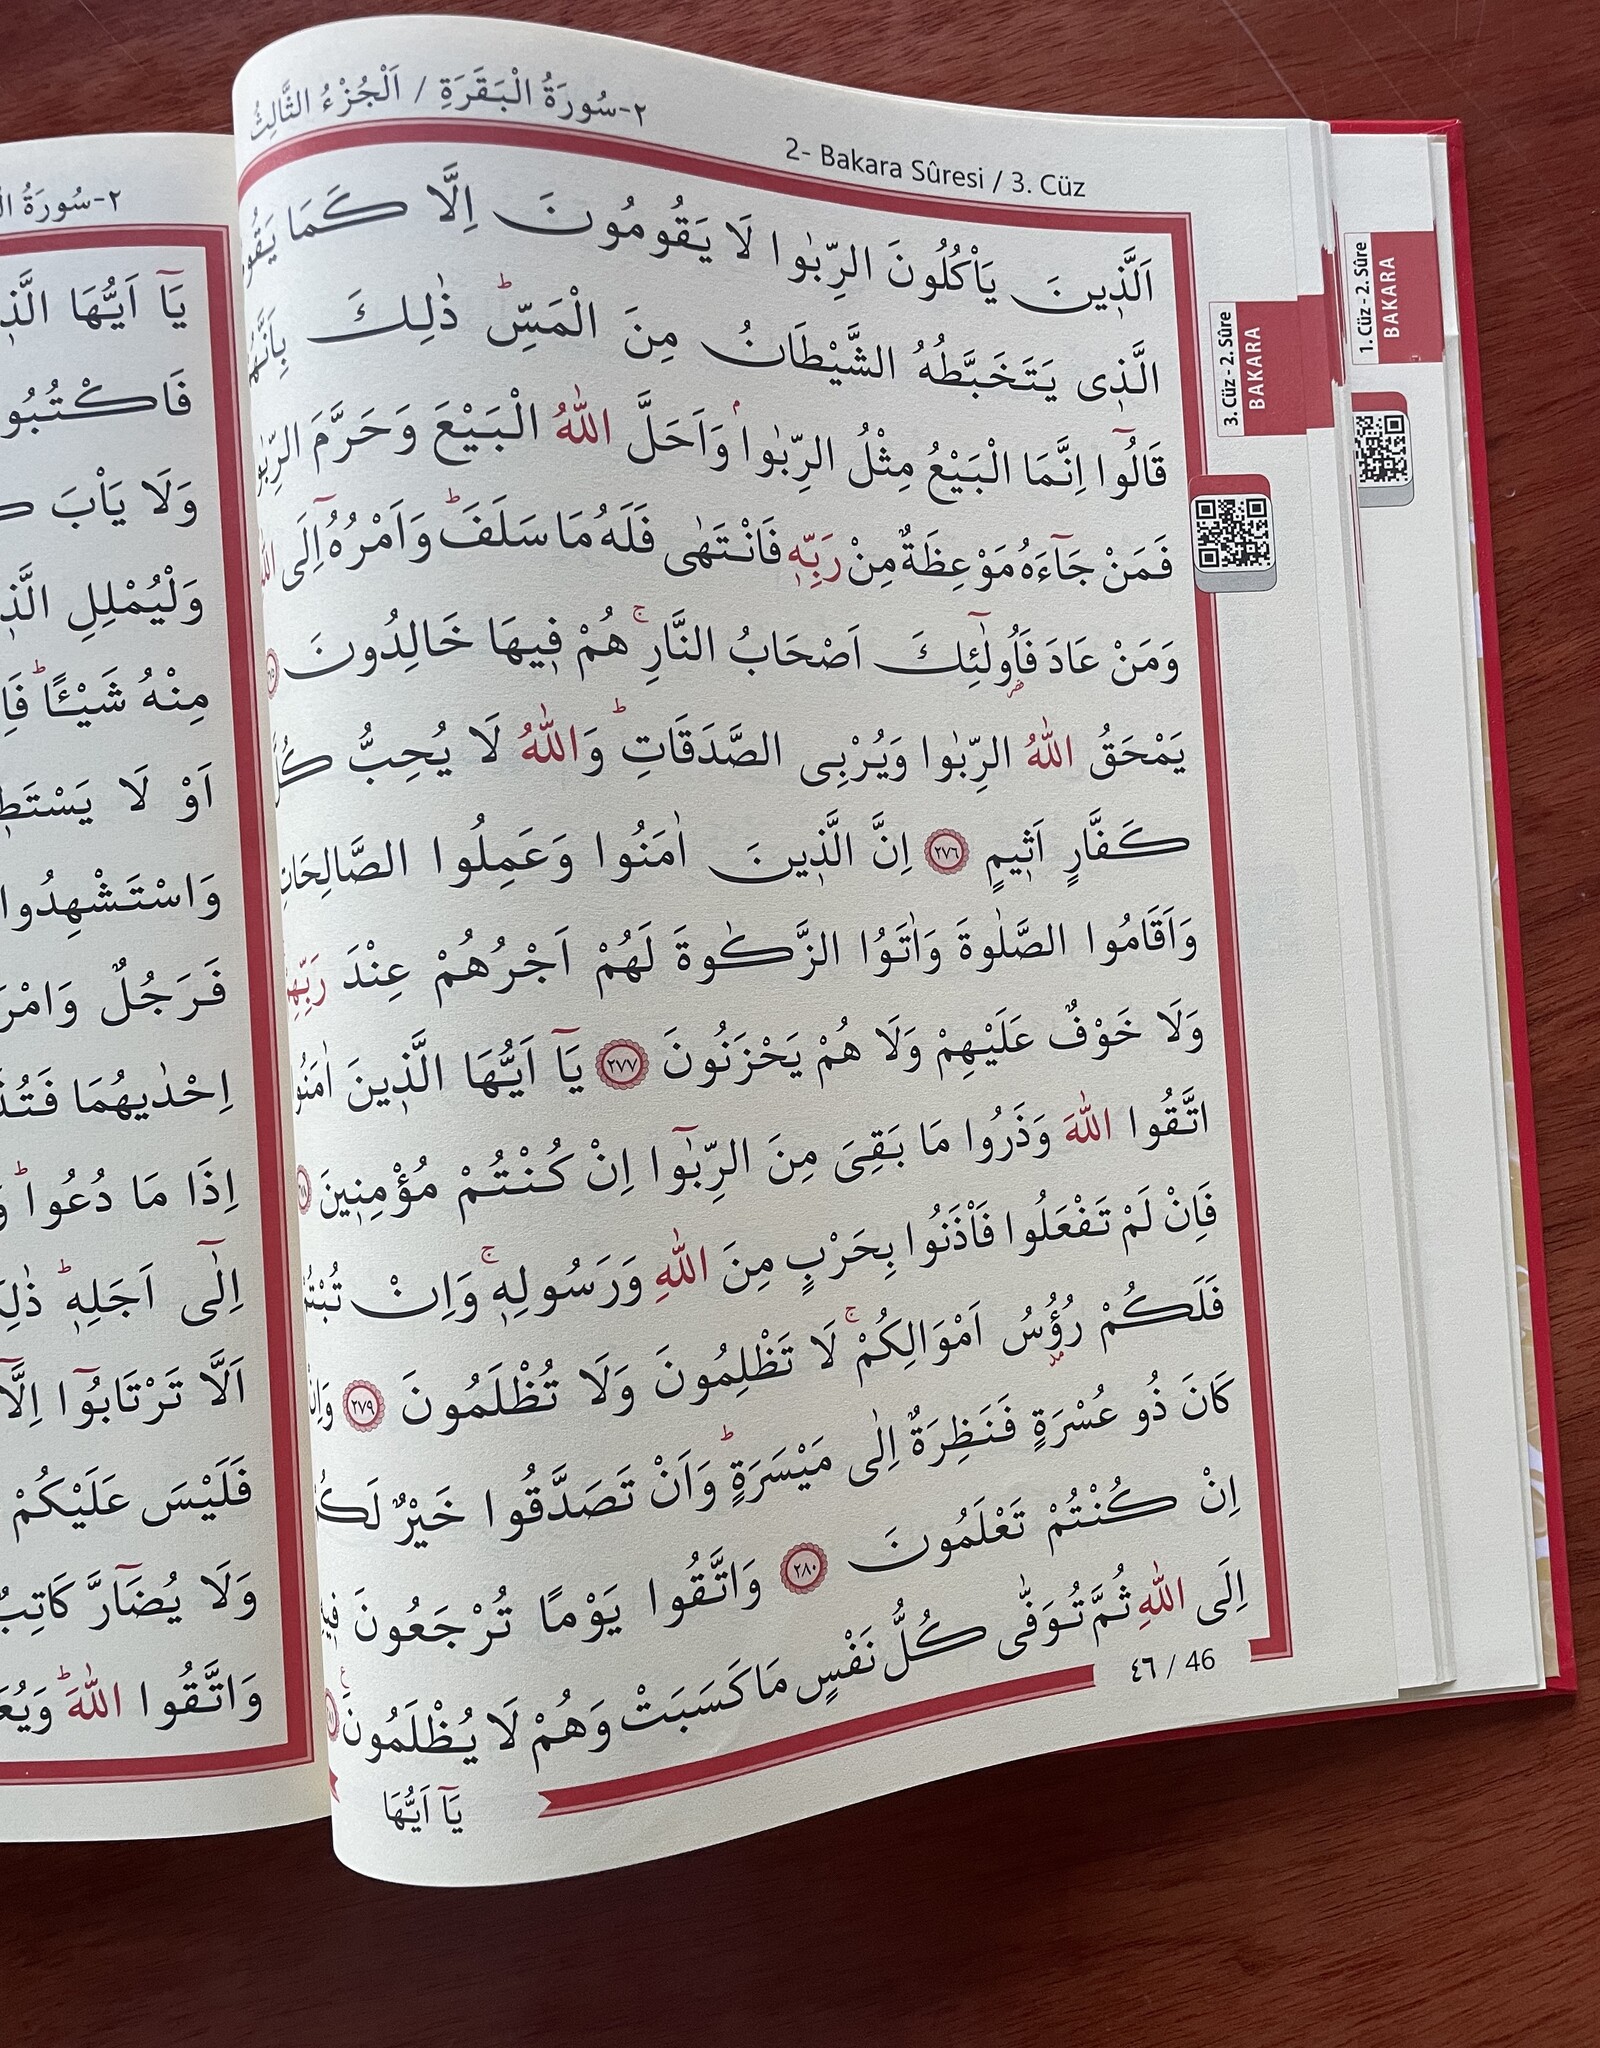 ٢-سُورَةُ الْبَقَرَةِ / اَلْجُزْءُ الثَّالِثُ
2- Bakara Sûresi / 3. Cüz
اَلَّذ۪ينَ يَأْكُلُونَ الرِّبٰوا لَا يَقُومُونَ اِلَّا كَمَا
الَّذ۪ى يَتَخَبَّطُهُ الشَّيْطَانُ مِنَ الْمَسِّۜ ذٰلِكَ بِاَنَّهُمْ
قَالُٓوا اِنَّمَا الْبَيْعُ مِثْلُ الرِّبٰواۢ وَاَحَلَّ اللّٰهُ الْبَيْعَ وَحَرَّمَ الرِّبٰوا
فَمَنْ جَٓاءَهُ مَوْعِظَةٌ مِنْ رَبِّه۪ فَانْتَهٰى فَلَهُ مَا سَلَفَۜ وَاَمْرُهُٓ اِلَى
وَمَنْ عَادَ فَاُو۬لٰٓئِكَ اَصْحَابُ النَّارِۚ هُمْ ف۪يهَا خَالِدُونَ
يَمْحَقُ اللّٰهُ الرِّبٰوا وَيُرْبِى الصَّدَقَاتِۜ وَاللّٰهُ لَا يُحِبُّ كُلَّ
كَفَّارٍ اَث۪يمٍ ﴿٢٧٦﴾ اِنَّ الَّذ۪ينَ اٰمَنُوا وَعَمِلُوا الصَّالِحَاتِ
وَاَقَامُوا الصَّلٰوةَ وَاٰتَوُا الزَّكٰوةَ لَهُمْ اَجْرُهُمْ عِنْدَ رَبِّهِمْ
وَلَا خَوْفٌ عَلَيْهِمْ وَلَا هُمْ يَحْزَنُونَ ﴿٢٧٧﴾ يَٓا اَيُّهَا الَّذ۪ينَ اٰمَنُوا
اتَّقُوا اللّٰهَ وَذَرُوا مَا بَقِىَ مِنَ الرِّبٰٓوا اِنْ كُنْتُمْ مُؤْمِن۪ينَ
فَاِنْ لَمْ تَفْعَلُوا فَأْذَنُوا بِحَرْبٍ مِنَ اللّٰهِ وَرَسُولِه۪ۚ وَاِنْ تُبْتُمْ
فَلَكُمْ رُؤُ۫سُ اَمْوَالِكُمْۚ لَا تَظْلِمُونَ وَلَا تُظْلَمُونَ ﴿٢٧٩﴾ وَاِنْ
كَانَ ذُو عُسْرَةٍ فَنَظِرَةٌ اِلٰى مَيْسَرَةٍۜ وَاَنْ تَصَدَّقُوا خَيْرٌ لَكُمْ
اِنْ كُنْتُمْ تَعْلَمُونَ ﴿٢٨٠﴾ وَاتَّقُوا يَوْمًا تُرْجَعُونَ ف۪يهِ
اِلَى اللّٰهِ ثُمَّ تُوَفّٰى كُلُّ نَفْسٍ مَا كَسَبَتْ وَهُمْ لَا يُظْلَمُونَ
٤٦ / 46
يَٓا اَيُّهَا
3. Cüz - 2. Sûre
BAKARA
1. Cüz - 2. Sûre
BAKARA
٢-سُورَةُ
يَٓا اَيُّهَا
وَلَا يَأْبَ
وَلْيُمْلِلِ
مِنْهُ شَيْـًٔاۜ
اَوْ لَا
وَاسْتَشْهِدُوا
فَرَجُلٌ
اِحْدٰيهُمَا
اِذَا مَا دُعُواۜ
اِلٰٓى اَجَلِه۪ۜ
اَلَّا تَرْتَابُٓوا اِلَّٓا
فَلَيْسَ عَلَيْكُمْ
وَلَا يُضَٓارَّ كَاتِبٌ
وَاتَّقُوا اللّٰهَۜ